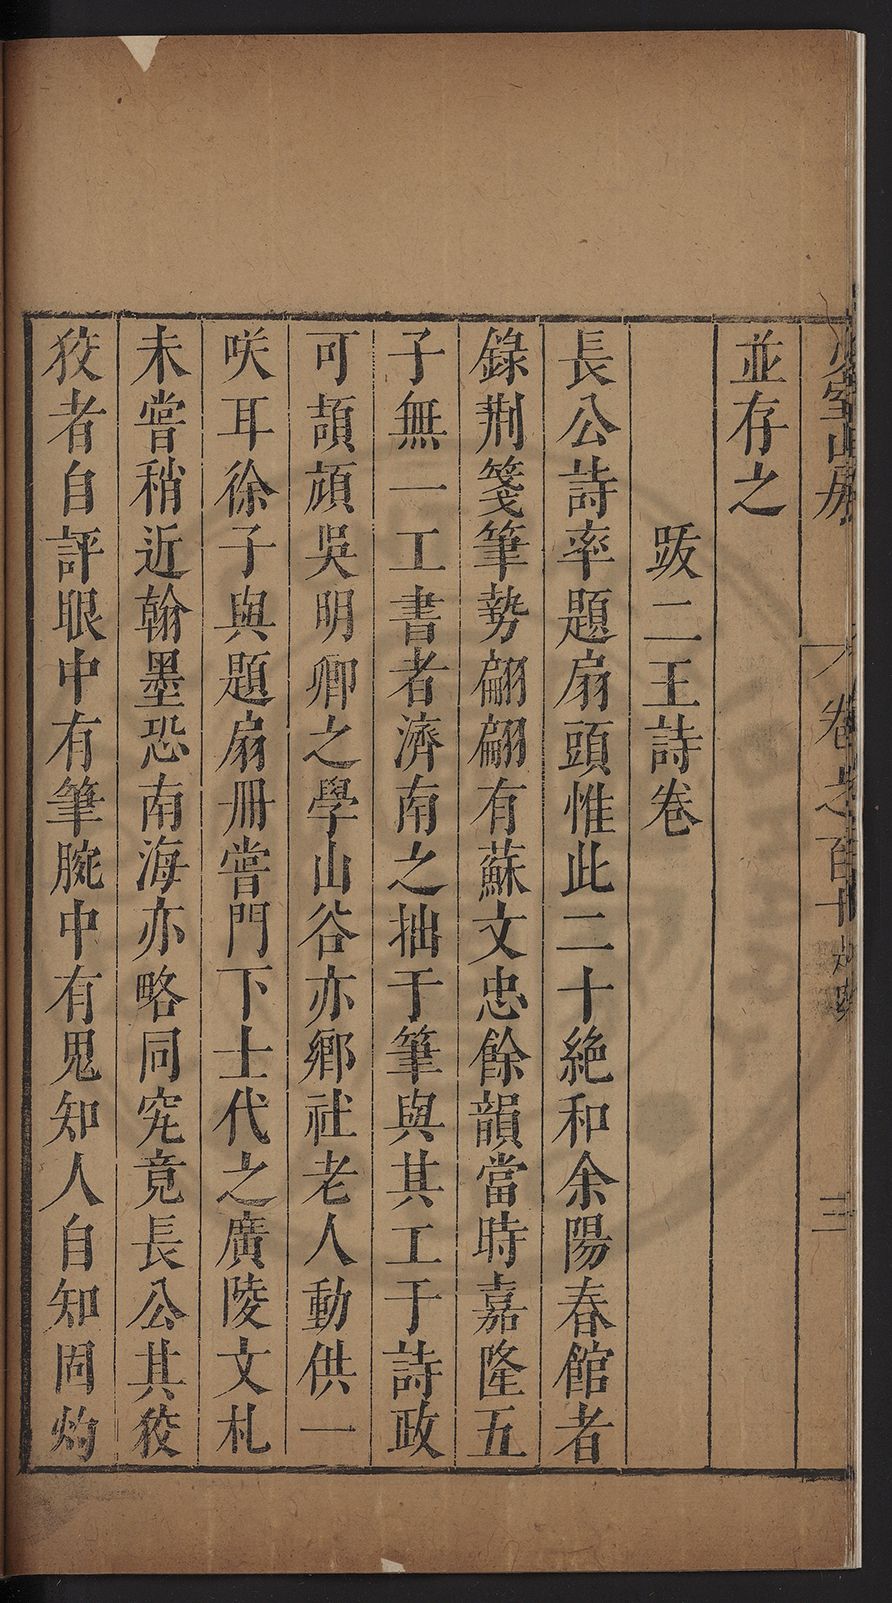 並存之
跋二王詩卷
長公詩率題扇頭惟此二十絶和余陽春館者
錄荆箋筆勢翩翩有蘇文忠餘韻當時嘉隆五
子無一工書者濟南之拙于筆與其工于詩政
可頡頏吳明卿之學山谷亦鄉社老人動供一
咲耳徐子與題扇册嘗門下士代之廣陵文札
未嘗稍近翰墨恐南海亦略同究竟長公其狡
狡者自評眼中有筆腕中有鬼知人自知固灼
少室山房
卷之百十
三